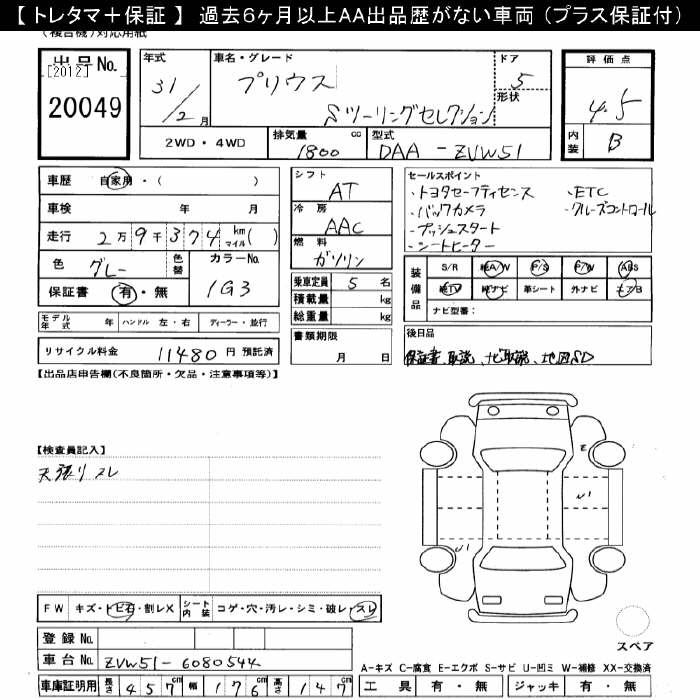 【 トレタマ＋保証 】 過去6ヶ月以上AA出品歴がない車両 (プラス保証付)
(複合機)対応用紙
出品No.
[2012]
20049
年式
31/2月
車名・グレード
プリウス
Sツーリングセレクション
ドア
5
形状
評価点
4.5
内装
B
2WD・4WD
排気量
1800 cc
型式
DAA - ZVW51
車歴 自家用・( )
車検 年 月
走行 2万9千374 km マイル( )
色 グレー
色替
カラーNo.
1G3
保証書 有・無
シフト
AT
冷房
AAC
燃料
ガソリン
セールスポイント
・トヨタセーフティセンス
・バックカメラ
・プッシュスタート
・シートヒーター
・ETC
・クルーズコントロール
乗車定員 5 名
積載量 kg
総重量 kg
装備品
S/R 純A/W P/S P/W ABS
純TV 純ナビ 革シート 外ナビ エアB
ナビ型番：
モデル年式 年 ハンドル 左・右 ディーラー・並行
リサイクル料金 11480 円 預託済
書類期限
月 日
後日品
保証書、取説、ナビ取説、地図SD
【出品店申告欄(不良箇所・欠品・注意事項等)】
【検査員記入】
天張りスレ
Z
U1
U1
FW キズ・トビ石・割レX
シート内装 コゲ・穴・汚レ・シミ・破レ・スレ
登録No.
車台No. ZVW51-6080544
スペア
A-キズ C-腐食 E-エクボ S-サビ U-凹ミ W-補修 XX-交換済
車庫証明用 長さ 457cm 幅 176cm 高さ 147cm
工具 有・無 ジャッキ 有・無